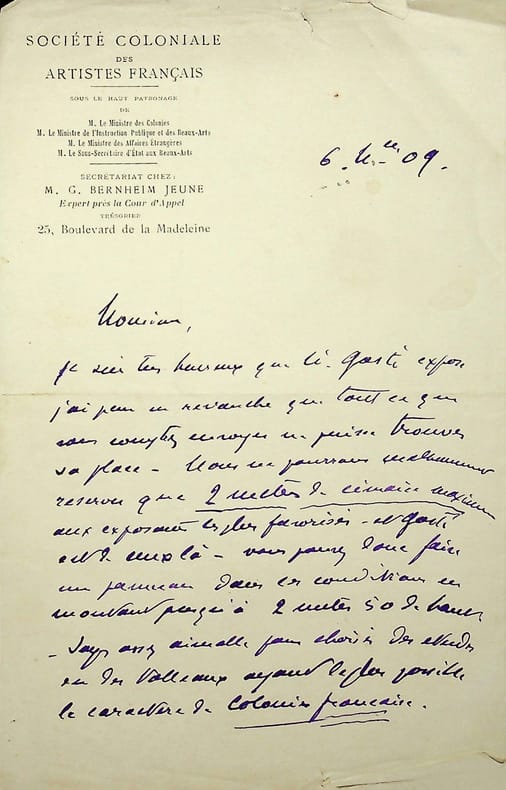 SOCIÉTÉ COLONIALE
DES
ARTISTES FRANÇAIS
SOUS LE HAUT PATRONAGE
DE
M. Le Ministre des Colonies
M. Le Ministre de l'Instruction Publique et des Beaux-Arts
M. Le Ministre des Affaires Étrangères
M. Le Sous-Secrétaire d'État aux Beaux-Arts
SECRÉTARIAT CHEZ:
M. G. BERNHEIM JEUNE
Expert près la Cour d'Appel
TRÉSORIER
25, Boulevard de la Madeleine
6 09.
Monsieur,
je suis très heureux que Gasté expose
j'ai peur en revanche que tout ce que
vous comptez envoyer ne puisse trouver
sa place - Nous ne pourrons malheureusement
reserver que 2 mètres de cimaise maximum
aux exposants les plus favorisés - et Gasté
est de ceux là - vous pouvez donc faire
un panneau dans ces conditions en
montant jusqu'à 2 mètres 50 de haut
- Soyez assez aimable pour choisir des études
ou des tableaux ayant le plus possible
le caractère de colonies françaises.